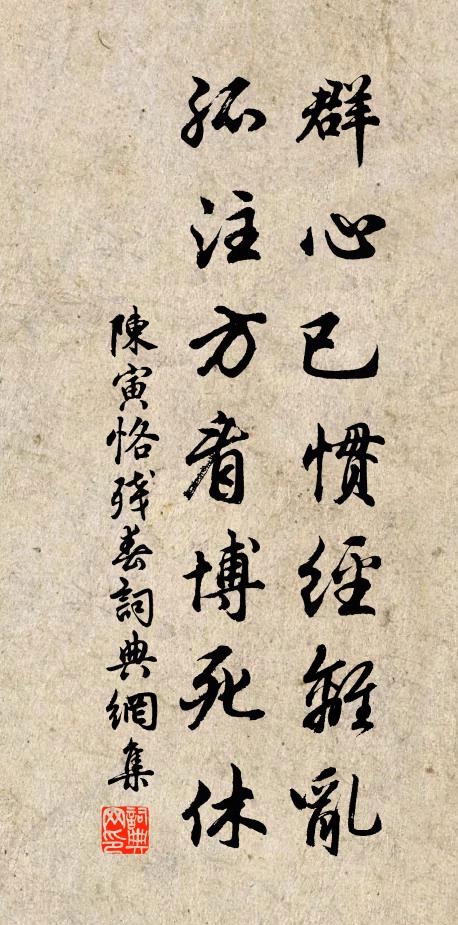 群心已慣經離亂
孤注方看博死休
陳寅恪殘春詞典網集
詞典網印